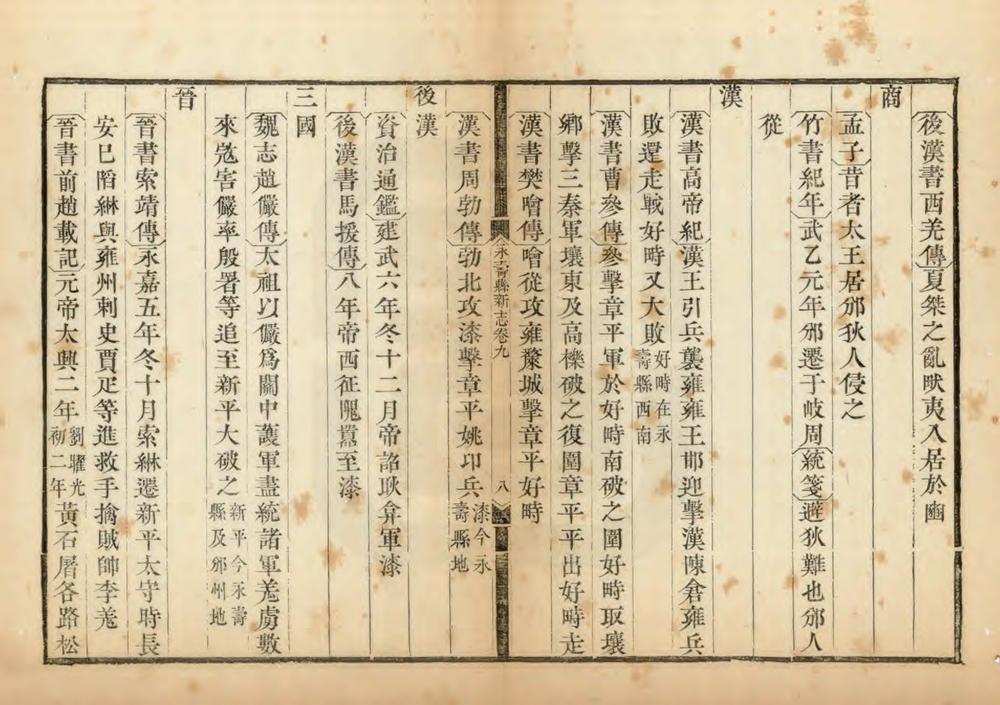 後漢書西羌傳夏桀之亂畎夷入居於豳
商
孟子昔者太王居邠狄人侵之
竹書紀年武乙元年邠遷于岐周統箋避狄難也邠人
從
漢
漢書高帝紀漢王引兵襲雍雍王邯迎擊漢陳倉雍兵
敗還走戰好畤又大敗好畤在永壽縣西南
漢書曹參傳參擊章平軍於好畤南破之圍好畤取壤
鄉擊三秦軍壤東及高櫟破之復圍章平平出好畤走
漢書樊噲傳噲從攻雍斄城擊章平好畤
永壽縣新志卷九
八
漢書周勃傳勃北攻漆擊章平姚卬兵漆今永壽縣地
後漢
資治通鑑建武六年冬十二月帝詔耿弇軍漆
後漢書馬援傳八年帝西征隗囂至漆
三國
魏志趙儼傳太祖以儼爲關中護軍盡統諸軍羌虜數
來寇害儼率殷署等追至新平大破之新平今永壽縣及邠州地
晉
晉書索靖傳永嘉五年冬十月索綝遷新平太守時長
安已陷綝與雍州刺史賈疋等進救手擒賊帥李羌
晉書前趙載記元帝太興二年劉曜光初二年黃石屠各路松